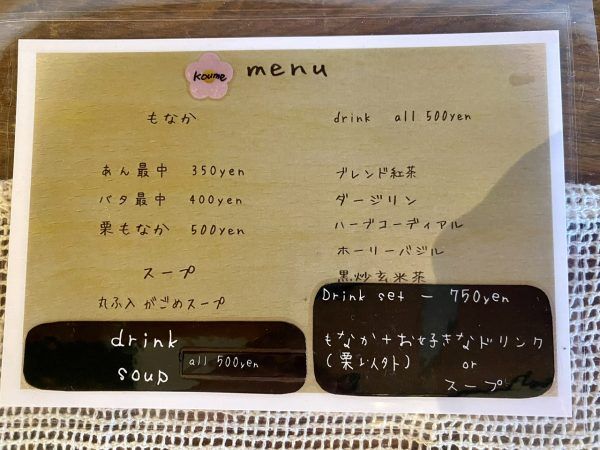 koume menu
もなか
あん最中 350yen
バタ最中 400yen
栗もなか 500yen
スープ
丸ふ入 がごめスープ
drink
soup
all 500yen
drink all 500yen
ブレンド紅茶
ダージリン
ハーブコーディアル
ホーリーバジル
黒炒玄米茶
Drink set - 750yen
もなか+お好きなドリンク
(栗以外) or
スープ